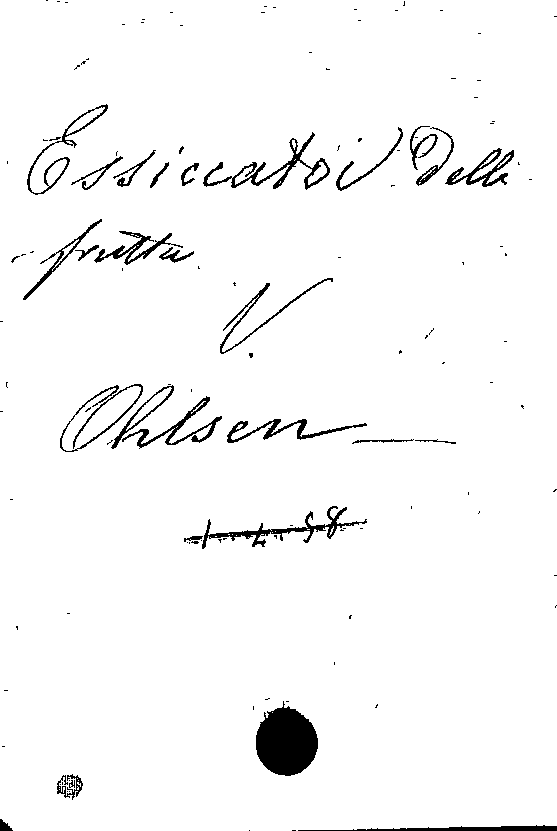 Essiccatoi Delle
frutta
V.
Ohlsen
1.4.98